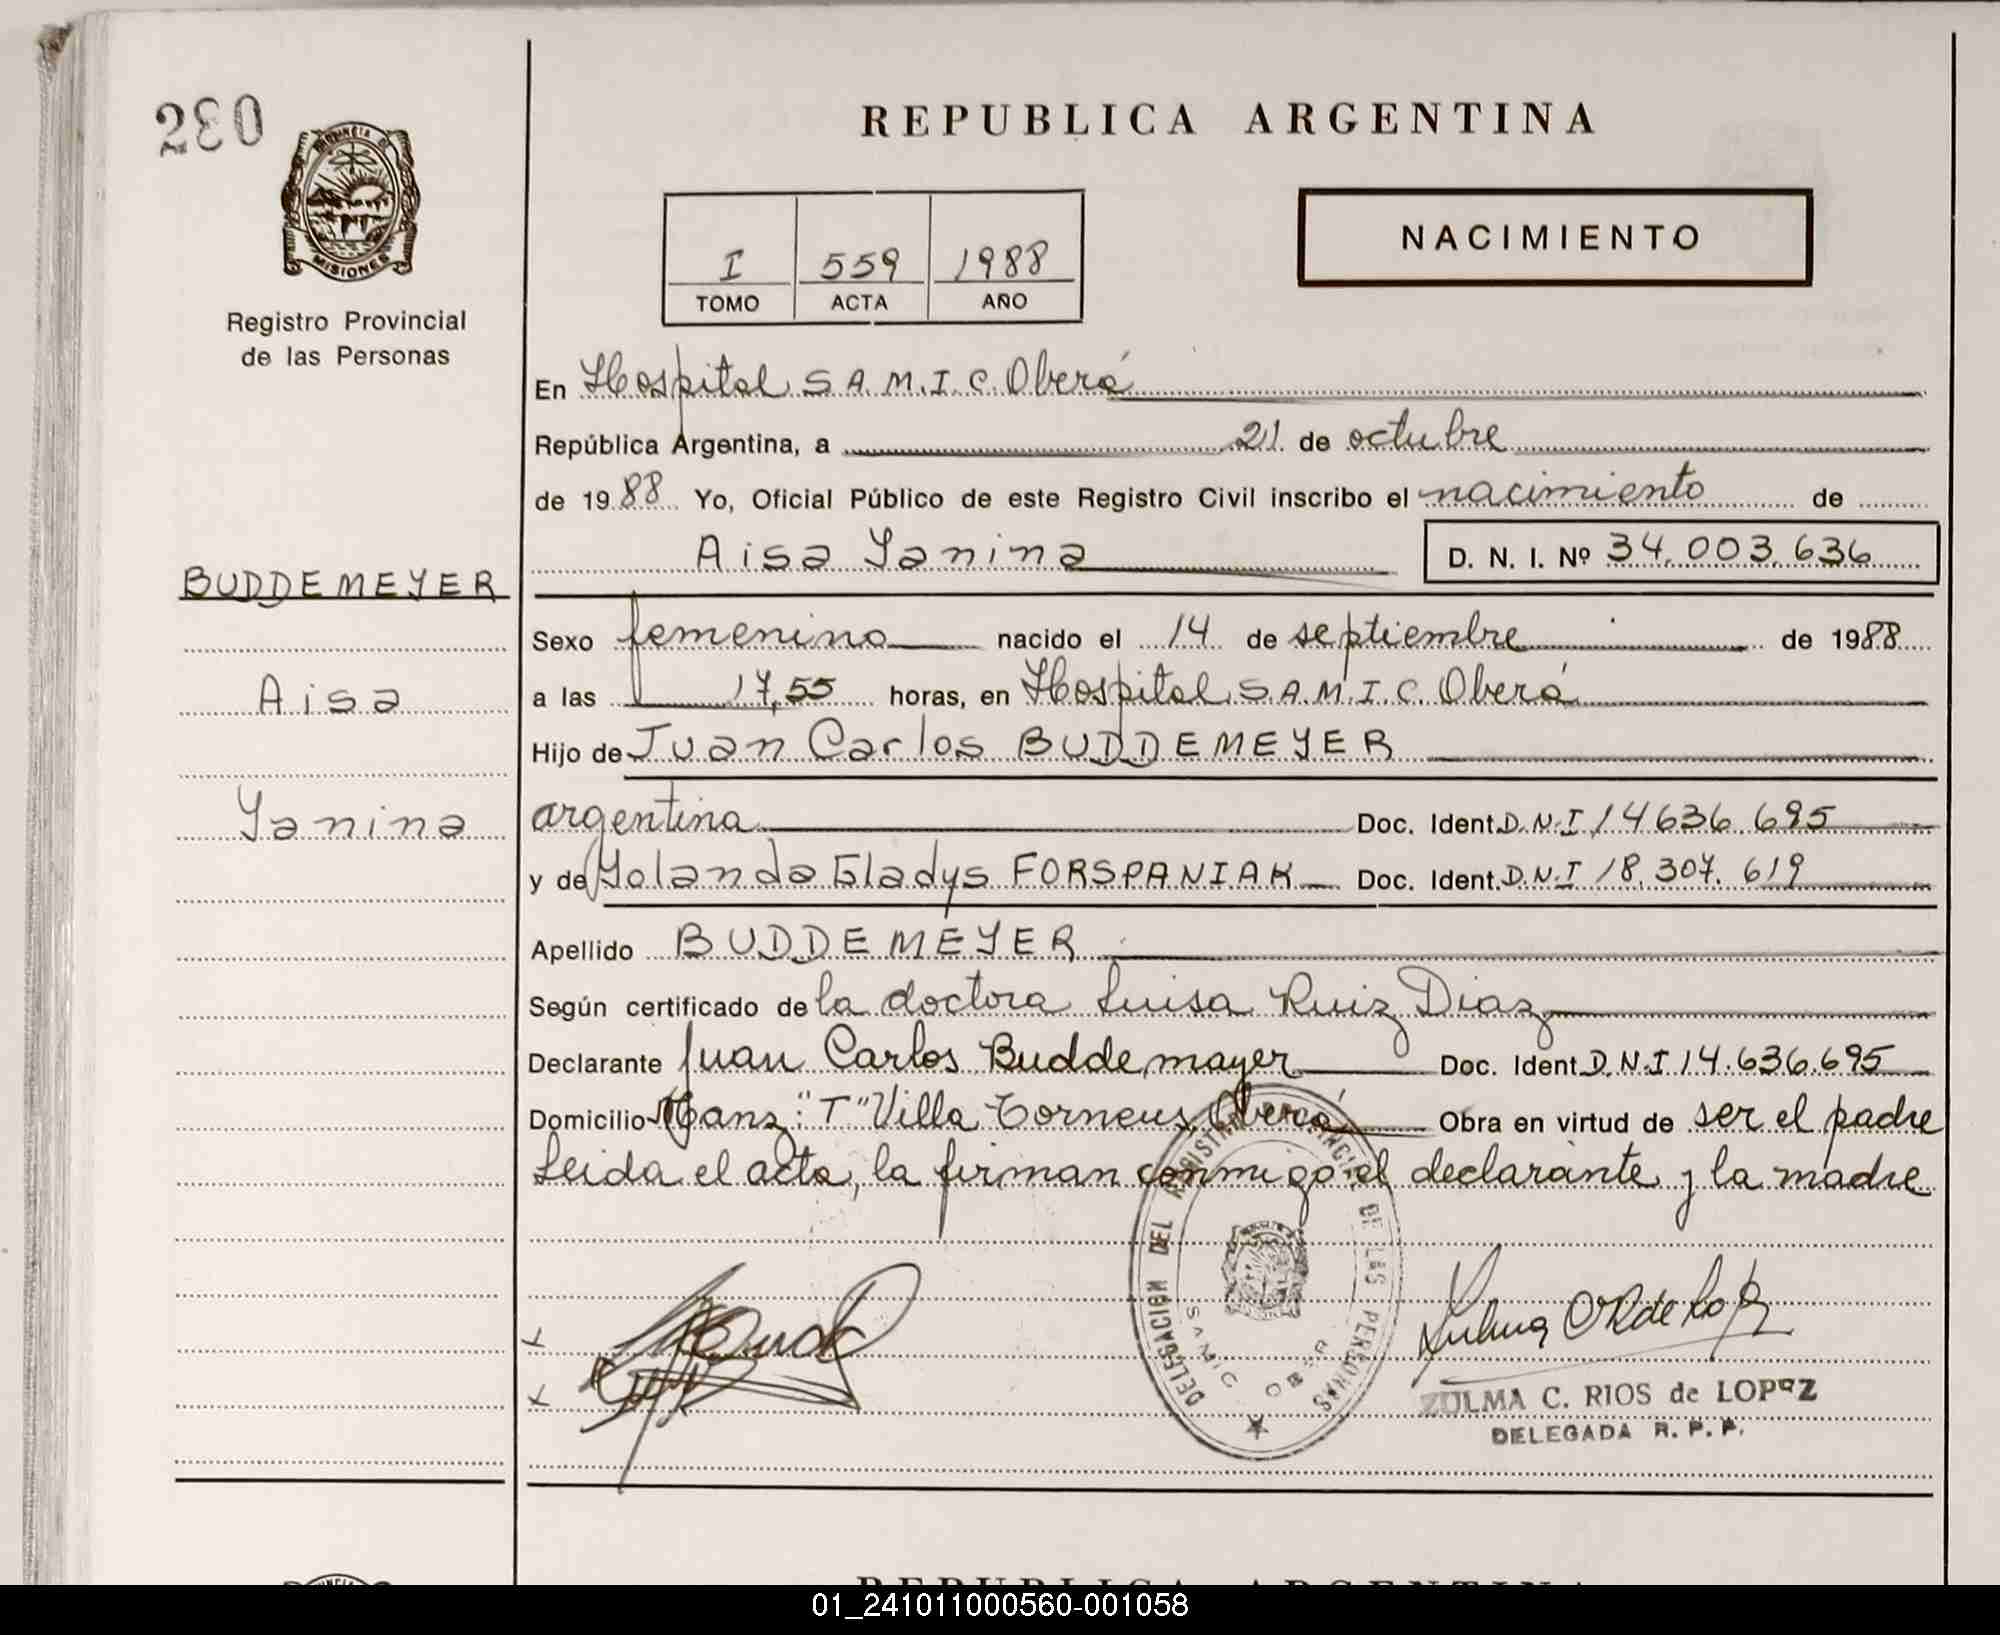 280
PROVINCIA DE
MISIONES
Registro Provincial
de las Personas
REPUBLICA ARGENTINA
NACIMIENTO
I 559 1988
TOMO ACTA AÑO
En Hospital S.A.M.I.C. Oberá
República Argentina, a 21 de octubre
de 1988 Yo, Oficial Público de este Registro Civil inscribo el nacimiento de
Aisa Yanina D. N. I. Nº 34.003.636
BUDDEMEYER
Aisa
Yanina
Sexo femenino nacido el 14 de septiembre de 1988
a las 17,55 horas, en Hospital S.A.M.I.C. Oberá
Hijo de Juan Carlos BUDDEMEYER
argentina Doc. Ident. D.N.I 14636.695
y de Yolanda Gladys FORSPANIAK Doc. Ident. D.N.I 18.307.619
Apellido BUDDEMEYER
Según certificado de la doctora Luisa Ruiz Diaz
Declarante Juan Carlos Buddemayer Doc. Ident D.N.I 14.636.695
Domicilio Manz: "T" Villa Torneus, Oberá Obra en virtud de ser el padre
Leida el acta, la firman conmigo el declarante y la madre
DELEGACION DEL REGISTRO PROVINCIAL DE LAS PERSONAS
SAMIC OBERA
ZULMA C. RIOS de LOPEZ
DELEGADA R. P. P.
REPUBLICA ARGENTINA
01_241011000560-001058